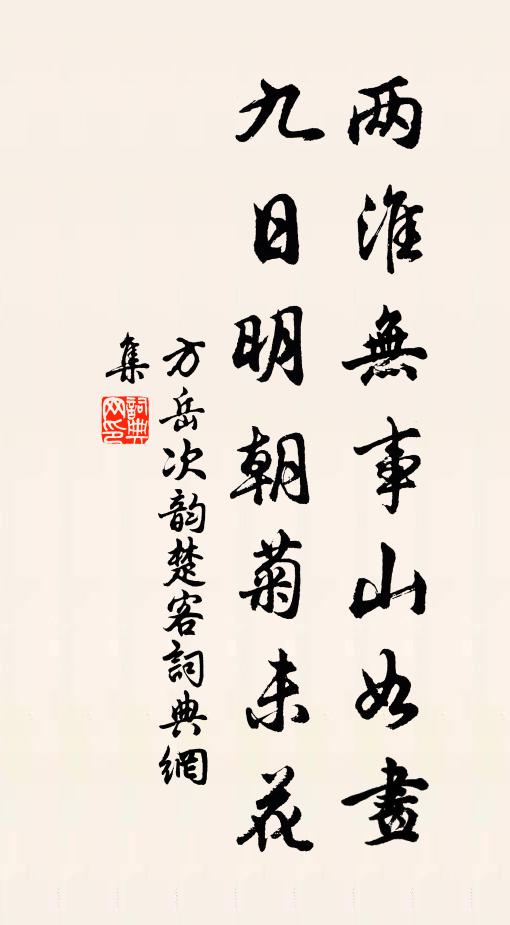 两淮無事山如畫
九日明朝菊未花
方岳次韵楚客詞典網
集
詞典网印